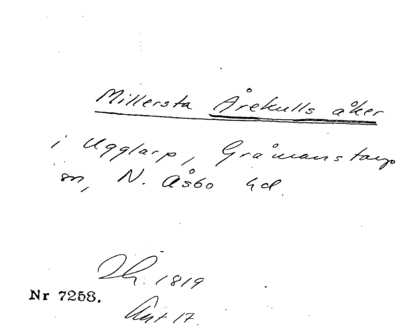 Millersta Årekulls åker
i Ugglarp, Gråmanstorp
sn, N. Åsbo hd.
1819
Nr 7258.
Akt 17.